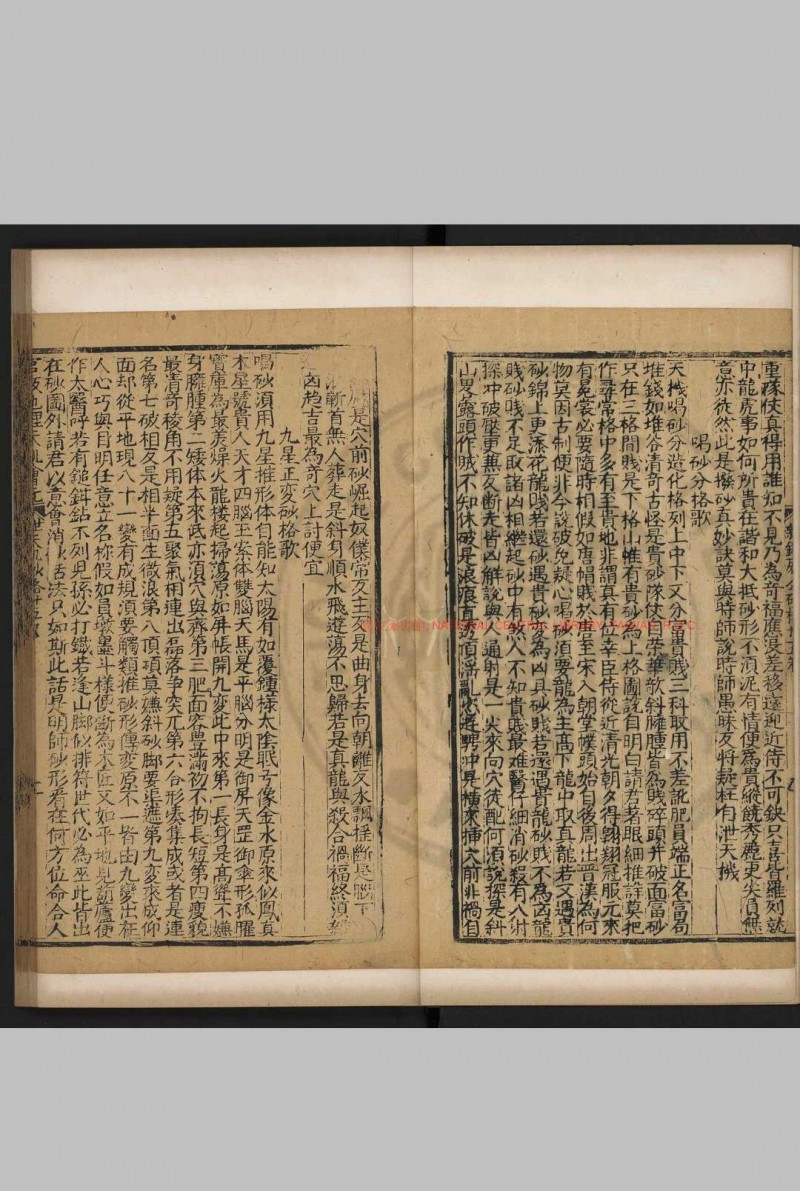 重隊伏真得用誰知不見乃為奇福應浸差移遠迎近侍不可缺只喜皆羅列就
中龍虎事如何所貴在諧和大抵砂形不須泥有情便為貴縱饒秀麗更尖員無
意亦徒然此是撥砂真妙訣莫與時師說時師愚昧反將疑枉自泄天機
喝砂分格歌
天機喝砂分造化格列上中下又分富貴賤三科取用不差訛肥員端正名富局
堆錢如堆谷清奇古怪是貴砂隊伏自榮華欹斜臃腫皆為賤碎頭并破面富砂
只在三格間賤是下格山惟有貴砂為上格圖說自明白請君着眼細推詳莫把
作尋常格中多有至貴地非謂真有位幸臣侍從近清光朝夕得翱翔冠服元來
有冕裳必要隨時相假如唐帽賤於唐至宋入朝堂幞頭始自後周出晋漢為何
物莫因古制便非今說破免疑心喝砂須要龍為主高下龍中取貴龍若又遇貴
砂錦上更添花龍賤若還砂遇貴砂変為凶具砂賤若還遇骨龍砂賤不為凶龍
賤砂賤不足取諸凶相繼起砂中有煞人不知貴賤最难醫仔細消砂殺有八射
探冲破壓更兼反断走皆凶解說與人通射是一尖來向穴徒配何須說探是斜
山畧露頭作賊不知休破是浪痕直透頂淫亂
是穴前砂崛起奴僕常反主反是曲身去向朝離反水飄揺断是腦下
漸首無人葬走是斜身順水飛遊蕩不思歸若是真龍與殺合禍福終須
凶趋吉最為奇穴上討便宜
九星正変砂格歌
喝砂須用九星推形体自能知太陽有如覆鍾様太陰眠弓像金水原來似鳳真
木星號貴人天才四腦玉案体雙腦天馬是平腦分明是御屏天罡御傘形孤曜
寶庫為最差燥火龍樓起掃蕩原如屏帳開九変此中來第一長身是高聳不嫌
身臃腫第二矮体本來低亦須穴與齊第三肥面容豊滿初不拘長短第四瘦貌
最清奇稜角不用疑第五聚氣相連出磊落争突兀第六合形湊集成或者是連
名第七破相反是相半面生微浪第八頂項莫嫌斜砂脚要渠遮第九変來成仰
面却從平地現八十一變有成規須要觸類推砂形傳変原不一皆由九變出在
人心巧與目明任意立名称假如員墩墨斗様便断為木匠又如平地見葫蘆便
作太醫呼若有鎚鉗鉆不列見孫必打鐵若逢山脚似排符世代必為巫此皆出
在砂圖外請君以意會消砂活法只如斯此話是明師砂形看在何方位命合人